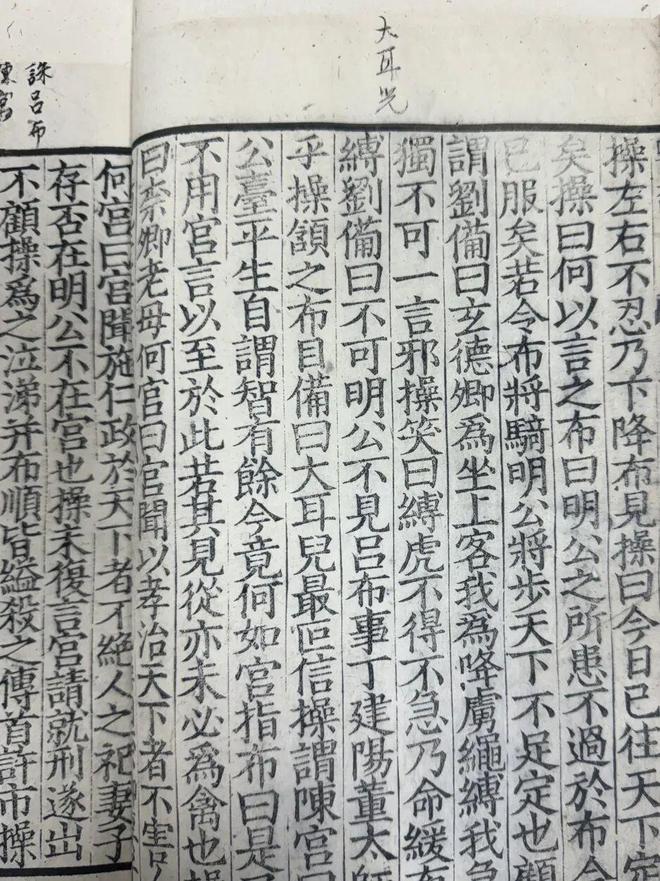 大耳児
操左右不忍乃下降布見操曰今日已往天下定
矣操曰何以言之布曰明公之所患不過於布今
已服矣若令布將騎明公將步天下不足定也顧
謂劉備曰玄德卿爲坐上客我爲降虜繩縛我急
獨不可一言邪操笑曰縛虎不得不急乃命緩布
縛劉備曰不可明公不見呂布事丁建陽董太師
乎操頷之布目備曰大耳兒最叵信操謂陳宮曰
公臺平生自謂智有餘今竟何如宮指布曰是子
不用宮言以至於此若其見從亦未必爲禽也操
曰柰卿老母何宮曰宮聞以孝治天下者不害人
誅呂布
陳宮
何宮曰宮聞施仁政於天下者不絕人之祀妻子
存否在明公不在宮也操未復言宮請就刑遂出
不顧操爲之泣涕并布順皆縊殺之傳首許市操